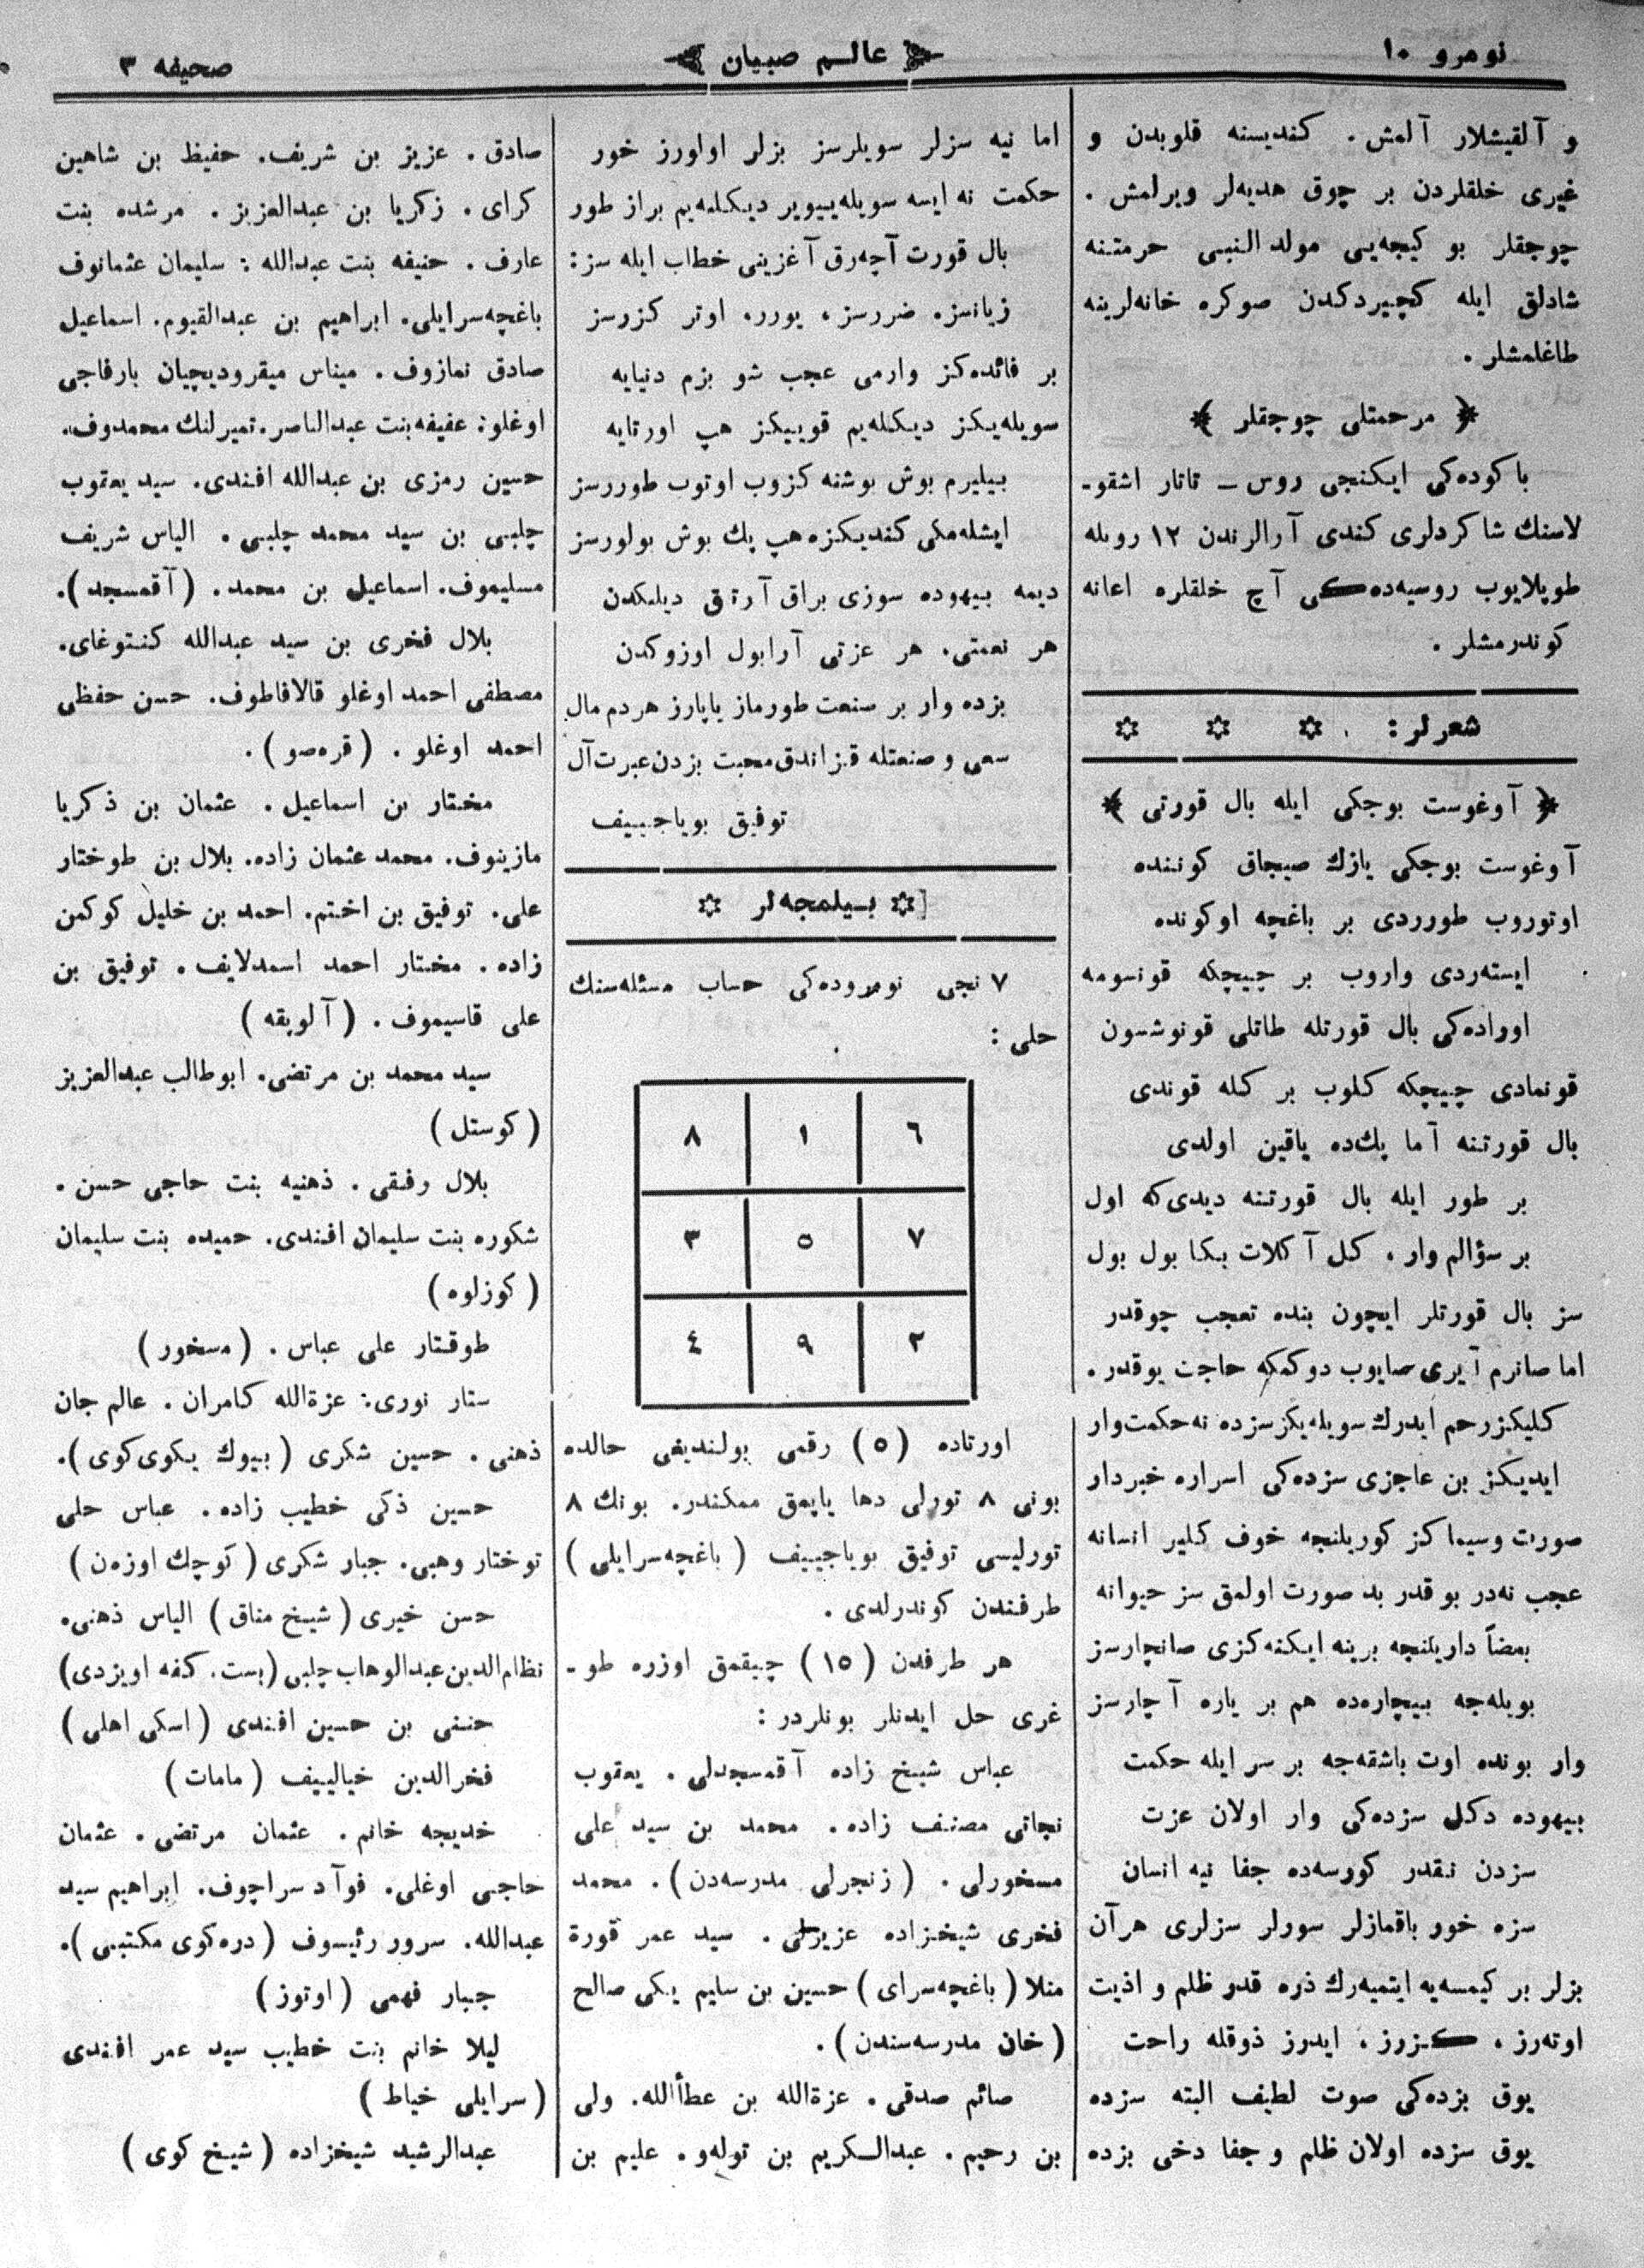 نومرو ١٠
عالم صبیان
صحیفه ٣
و آلقیشلار آلمش. کندیسنه قلوبدن و
غیری خلقلردن بر چوق هدیه‌لر ویرلمش.
چوجقلار بو کیجه‌یی مولد النبی حرمتنه
شادلق ایله کچیردکدن صوکره خانه‌لرینه
طاغلمشلر.
﴿ مرحمتلی چوجقلر ﴾
باکوده‌کی ایکنجی روس ـ تاتار اشقو-
لاسنك شاکردلری کندی آرالرندن ١٢ روبله
طوپلایوب روسیه‌ده‌کی آچ خلقلره اعانه
کوندرمشلر.
شعرلر:
﴿ آوغوست بوجکی ایله بال قورتی ﴾
آوغوست بوجکی یازك صیجاق کوننده
اوتوروب طورردی بر باغچه اوکونده
ایسته‌ردی واروب بر چیچکه قونسومه
اوراده‌کی بال قورتله طاتلی قونوشسون
قونمادی چیچکه کلوب بر کله قوندی
بال قورتنه آما پك‌ده یاقین اولدی
بر طور ایله بال قورتنه دیدی‌که اول
بر سؤالم وار. کل آکلات بکا بول بول
سز بال قورتلر ایچون بنده تعجب چوقدر
اما صانرم آیری صایوب دوکمکه حاجت یوقدر.
کلیکز رحم ایدرك سویله‌یکز سزده نه حکمت وار
ایدیکز بن عاجزی سزده‌کی اسراره خبردار
صورت و سیماکز کورینلجه خوف کلیر انسانه
عجب نه‌در بو قدر بد صورت اولمق سز حیوانه
بعضاً داریلنجه برینه ایکنه‌کزی صانچارسز
بویله‌جه بیچاره‌ده هم بر یاره آچارسز
وار بونده اوت باشقه‌جه بر سر ایله حکمت
بیهوده دکل سزده‌کی وار اولان عزت
سزدن نقدر کورسه‌ده جفا نیه انسان
سزه خور باقمازلر سورلر سزلری هر آن
بزلر بر کیمسه‌یه ایتمیه‌رك ذره قدر ظلم و اذیت
اوته‌رز، کزرز، ایدرز ذوقله راحت
یوق بزده‌کی صوت لطیف البته سزده
یوق سزده اولان ظلم و جفا دخی بزده
اما نیه سزلر سویلرسز بزلر اولورز خور
حکمت نه ایسه سویله‌ییویر دیکله‌یم براز طور
بال قورت آچه‌رق آغزینی خطاب ایله سز:
زیانسز. ضررسز، یورر. اوتر کزرسز
بر فائده‌کز وارمی عجب شو بزم دنیایه
سویله‌یکز دیکله‌یم قوییکز هپ اورتایه
بیلیرم بوش بوشنه کزوب اوتوب طوررسز
ایشله‌مکی کندیکزه هپ پك بوش بولورسز
دیمه بیهوده سوزی براق آرتق دیلکدن
هر نعمتی. هر عزتی آرابول اوزوکدن
بزده وار بر صنعت طورماز یاپارز هردم مال
سعی و صنعتله قزاندق محبت بزدن عبرت آل
توفیق بویاجییف
بیلمجه‌لر
٧ نجی نومروده‌کی حساب مسئله‌سنك
حلی:
٨ ١ ٦
٣ ٥ ٧
٤ ٩ ٢
اورتاده (٥) رقمی بولندیغی حالده
بونی ٨ تورلی دها یاپمق ممکندر. بونك ٨
تورلیسی توفیق بویاجییف (باغچه‌سرایلی)
طرفندن کوندرلدی.
هر طرفدن (١٥) چیقمق اوزره طو-
غری حل ایدنلر بونلردر:
عباس شیخ زاده آقمسجدلی. یعقوب
نجاتی مصنف زاده. محمد بن سید علی
مسخورلی. (زنجرلی مدرسه‌دن). محمد
فخری شیخزاده عزیزلی. سید عمر قورة
منلا (باغچه‌سرای) حسین بن سلیم یکی صالح
(خان مدرسه‌سندن).
صائم صدقی. عزةالله بن عطأالله. ولی
بن رحیم. عبدالکریم بن توله‌و. علیم بن
صادق. عزیز بن شریف. حفیظ بن شاهین
کرای. زکریا بن عبدالعزیز. مرشده بنت
عارف. حنیفه بنت عبدالله: سلیمان عثمانوف
باغچه‌سرایلی. ابراهیم بن عبدالقیوم. اسماعیل
صادق نمازوف. میناس میقرودیچیان بارفاجی
اوغلو: عفیفه بنت عبدالناصر. تمیرلنك محمدوف..
حسین رمزی بن عبدالله افندی. سید یعقوب
چلبی بن سید محمد چلبی. الیاس شریف
مسلیموف. اسماعیل بن محمد. (آقمسجد).
بلال فخری بن سید عبدالله کنتوغای.
مصطفی احمد اوغلو قالافاطوف. حسن حفظی
احمد اوغلو. (قره‌صو).
مختار بن اسماعیل. عثمان بن ذکریا
مازینوف. محمد عثمان زاده. بلال بن طوختار
علی. توفیق بن اختم. احمد بن خلیل کوکمن
زاده. مختار احمد اسمدلایف. توفیق بن
علی قاسیموف. (آلوبقه)
سید محمد بن مرتضی. ابوطالب عبدالعزیز
(کوستل)
بلال رفقی. ذهنیه بنت حاجی حسن.
شکوره بنت سلیمان افندی. حمیده بنت سلیمان
(کوزلوه)
طوقتار علی عباس. (مسخور)
ستار نوری: عزةالله کامران. عالم جان
ذهنی. حسین شکری (بیوك یکوی کوی).
حسین ذکی خطیب زاده. عباس حلی
توختار وهبی. جبار شکری (کوچك اوزه‌ن)
حسن خیری (شیخ مناق) الیاس ذهنی.
نظام‌الدین عبدالوهاب چلبی (بست. کفه اویزدی)
حنفی بن حسین افندی (اسکی اهلی)
فخرالدین خیالییف (مامات)
خدیجه خانم. عثمان مرتضی. عثمان
حاجی اوغلی. فوآد سراچوف. ابراهیم سید
عبدالله. سرور رئیسوف (دره‌کوی مکتبی).
جبار فهمی (اوتوز)
لیلا خانم بنت خطیب سید عمر افندی
(سرایلی خیاط)
عبدالرشید شیخزاده (شیخ کوی)